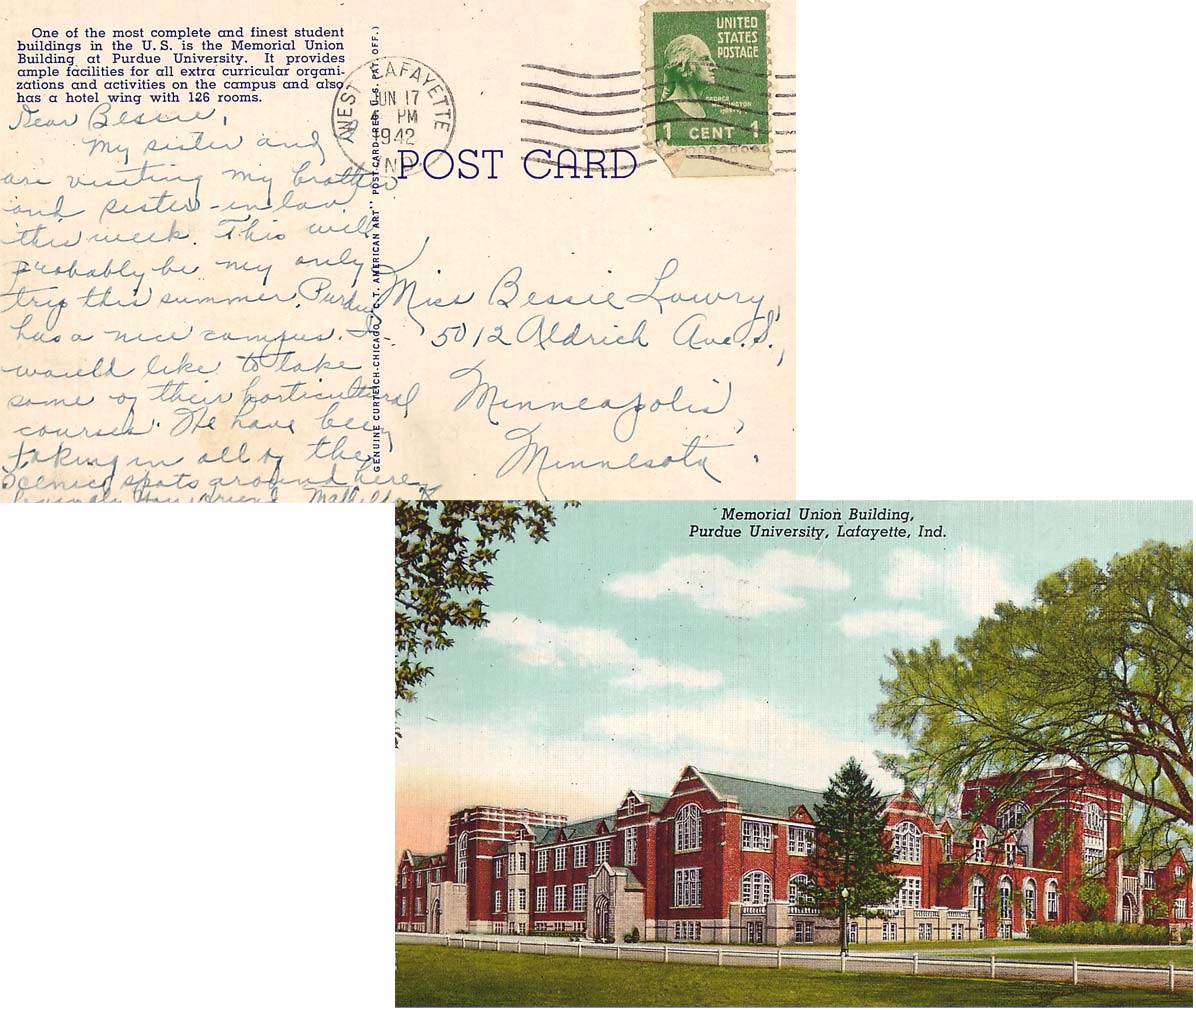 One of the most complete and finest student
buildings in the U. S. is the Memorial Union
Building at Purdue University. It provides
ample facilities for all extra curricular organi-
zations and activities on the campus and also
has a hotel wing with 126 rooms.
Dear Bessie,
My sister and I
are visiting my brother
and sister-in law
this week. This will
probably be my only
trip this summer. Purdue
has a nice campus. I
would like to take
some of their horticultural
courses. We have been
taking in all of the
scenic spots around here.
Your friend, 
GENUINE CURTEICH-CHICAGO "C. T. AMERICAN ART" POST CARD (REG. U. S. PAT. OFF.)
WEST LAFAYETTE
JUN 17
PM
1942
IND
UNITED
STATES
POSTAGE
GEORGE
WASHINGTON
1 CENT 1
POST CARD
Miss Bessie Lowry,
5012 Aldrich Ave. S.,
Minneapolis,
Minnesota.
Memorial Union Building,
Purdue University, Lafayette, Ind.